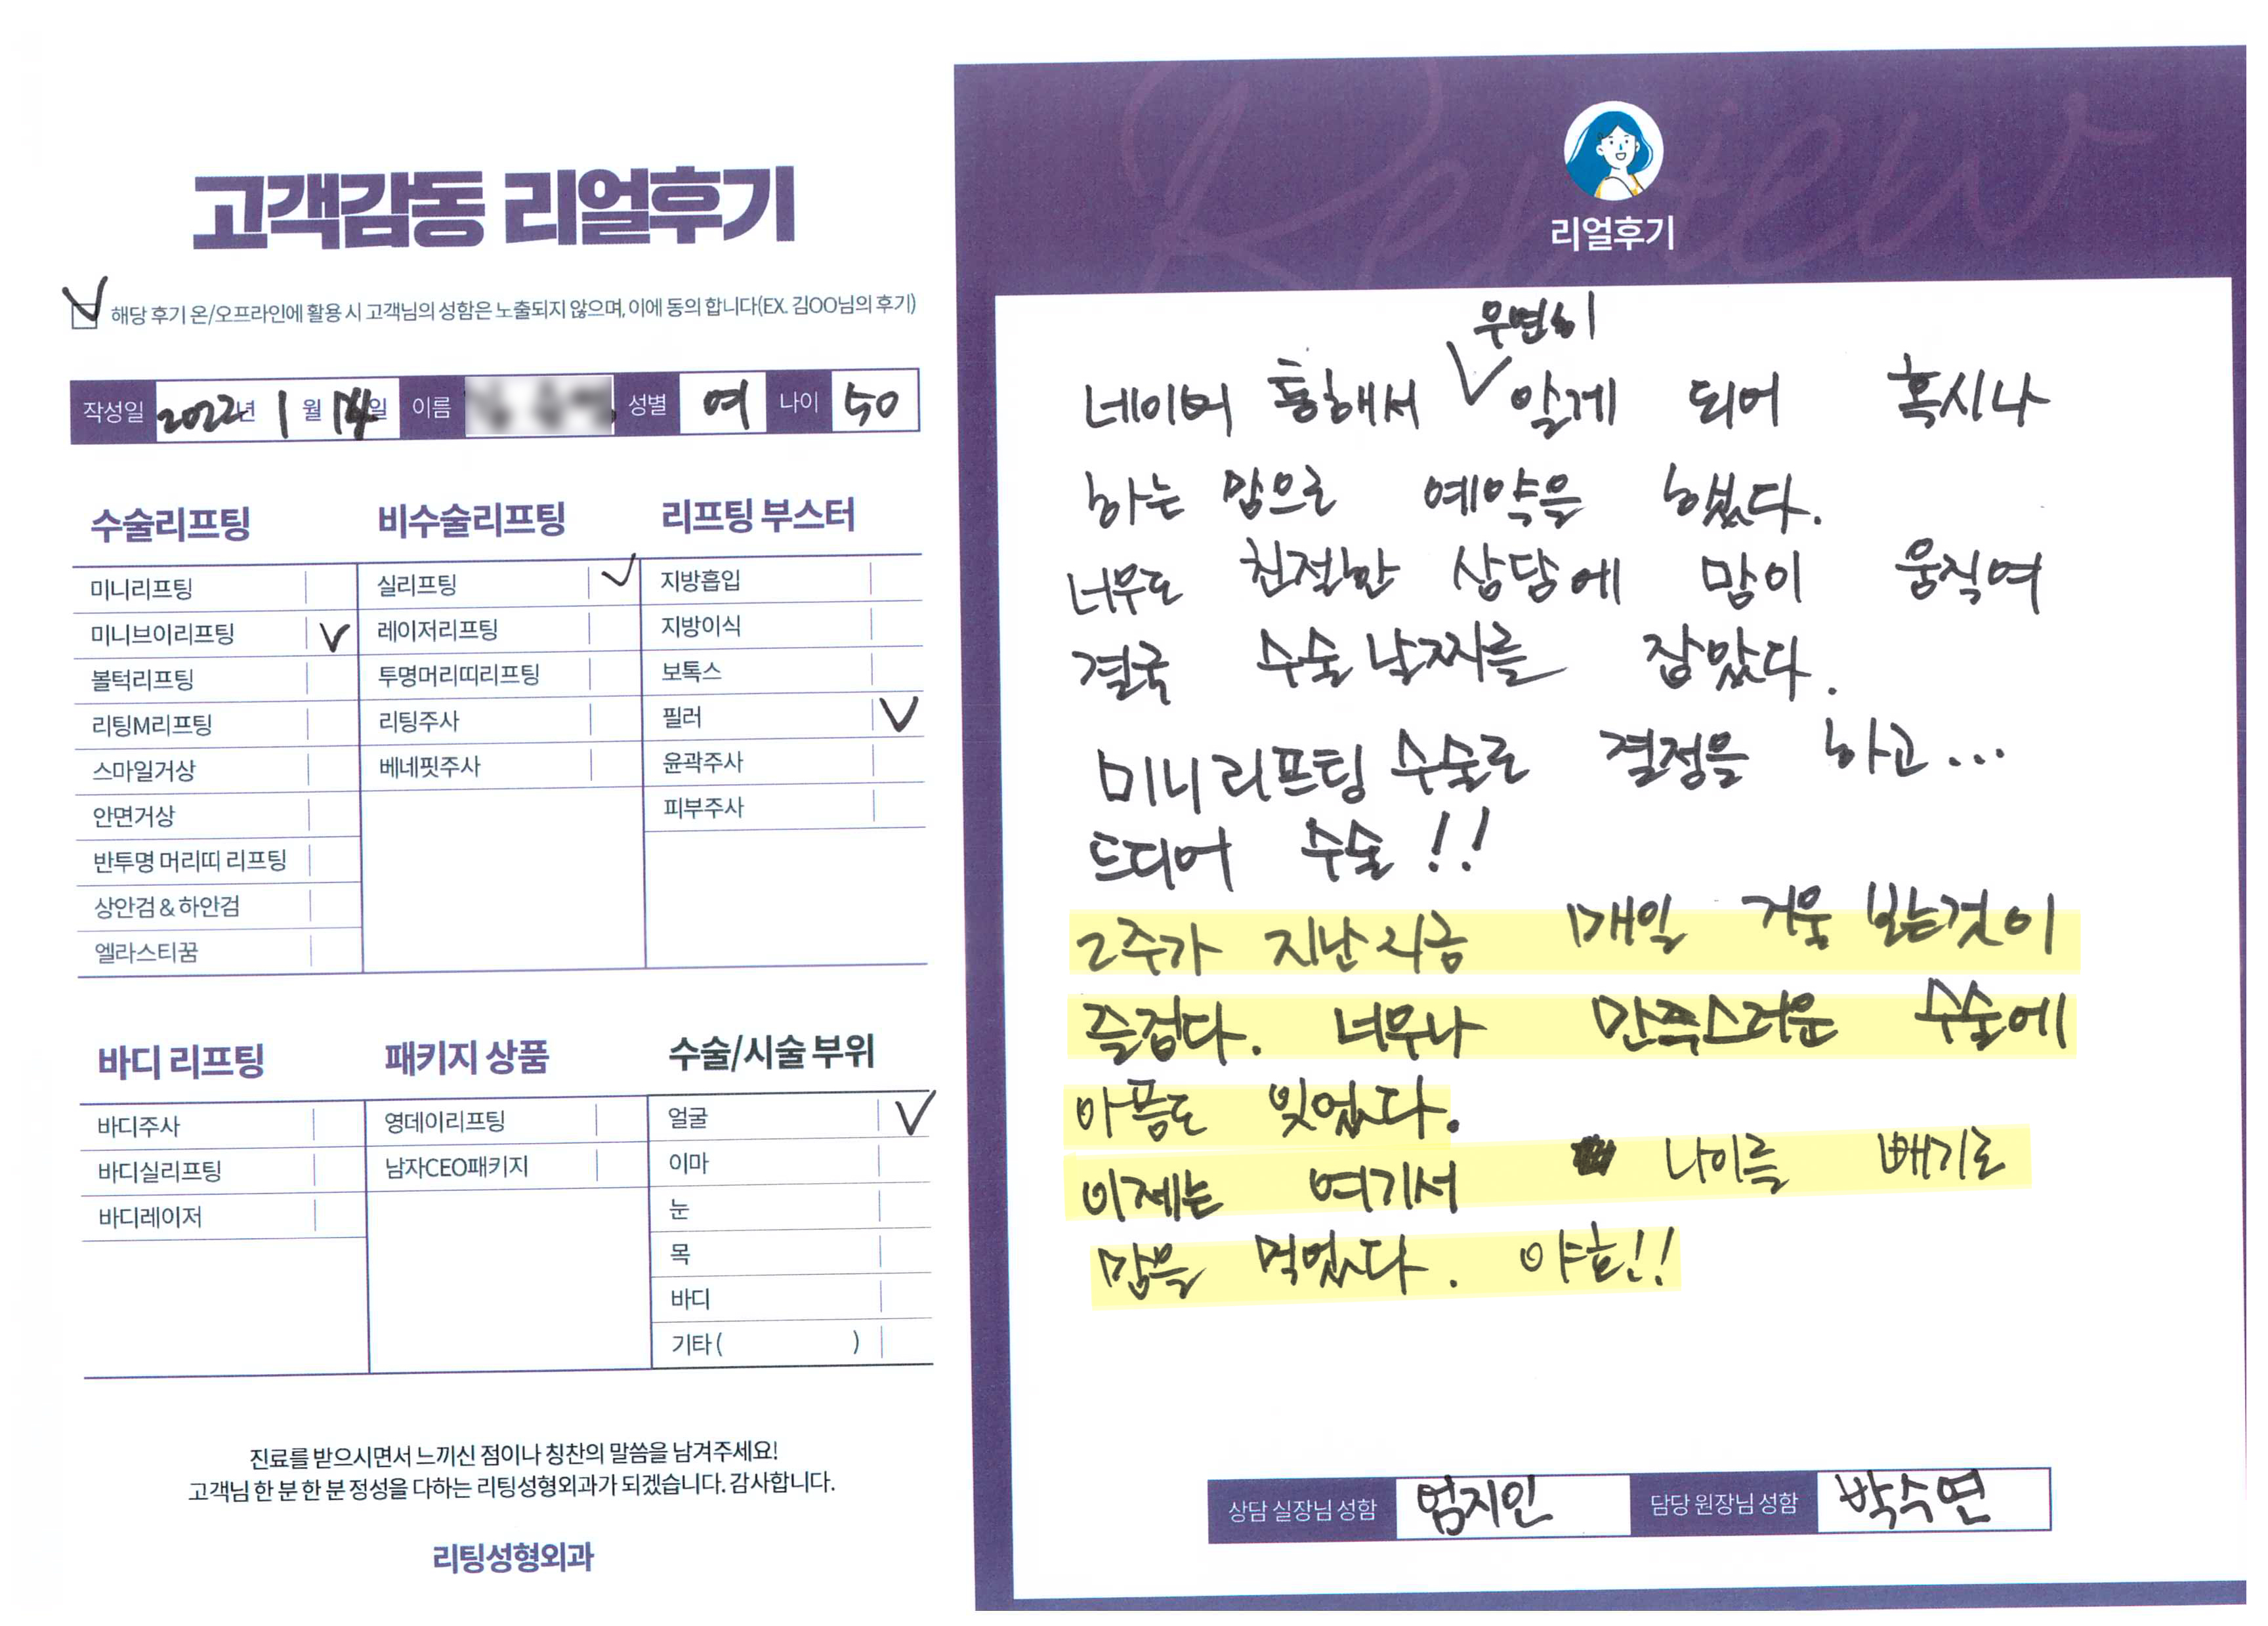 고객감동 리얼후기
해당 후기 온/오프라인에 활용 시 고객님의 성함은 노출되지 않으며, 이에 동의 합니다(EX. 김OO님의 후기)
작성일 2022년 1월 14일 이름 성별 여 나이 50
수술리프팅
미니리프팅
미니브이리프팅
볼턱리프팅
리팅M리프팅
스마일거상
안면거상
반투명 머리띠 리프팅
상안검 & 하안검
엘라스티꿈
비수술리프팅
실리프팅
레이저리프팅
투명머리띠리프팅
리팅주사
베네핏주사
리프팅 부스터
지방흡입
지방이식
보톡스
필러
윤곽주사
피부주사
바디 리프팅
바디주사
바디실리프팅
바디레이저
패키지 상품
영데이리프팅
남자CEO패키지
수술/시술 부위
얼굴
이마
눈
목
바디
기타 ( )
진료를 받으시면서 느끼신 점이나 칭찬의 말씀을 남겨주세요!
고객님 한 분 한 분 정성을 다하는 리팅성형외과가 되겠습니다. 감사합니다.
리팅성형외과
Review
리얼후기
우연히
네이버 통해서 알게 되어 혹시나
하는 맘으로 예약을 했다.
너무도 친절한 상담에 맘이 움직여
결국 수술 날짜를 잡았다.
미니리프팅 수술로 결정을 하고...
드디어 수술!!
2주가 지난 지금 매일 거울 보는것이
즐겁다. 너무나 만족스러운 수술에
아픔도 잊었다.
이제는 여기서 나이를 빼기로
맘을 먹었다. 야호!!
상담 실장님 성함 엄지인 담당 원장님 성함 박수연